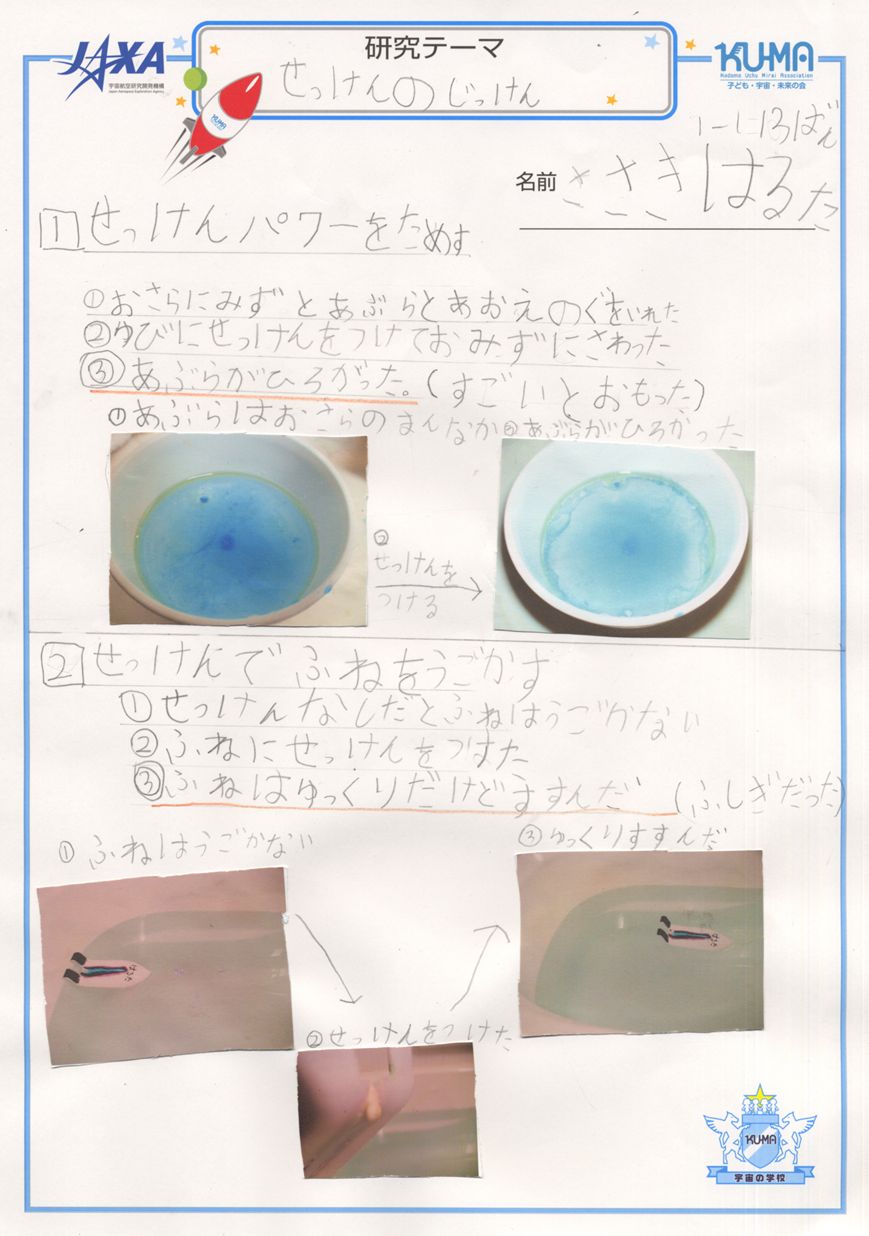 JAXA
宇宙航空研究開発機構
Japan Aerospace Exploration Agency
研究テーマ
せっけんのじっけん
KU-MA
Kodomo Uchu Mirai Association
子ども・宇宙・未来の会
KU-MA
1-1 13ばん
名前 ささきはるた
1 せっけんパワーをためす
①おさらにみずとあぶらとあおえのぐをいれた
②ゆびにせっけんをつけておみずにさわった
③あぶらがひろがった。(すごいとおもった)
①あぶらはおさらのまんなか ③あぶらがひろがった
②
せっけんを
つける
2 せっけんでふねをうごかす
①せっけんなしだとふねはうごかない
②ふねにせっけんをつけた
③ふねはゆっくりだけどすすんだ (ふしぎだった)
①ふねはうごかない
③ゆっくりすすんだ
はるた
はるた
②せっけんをつけた
KU-MA
宇宙の学校